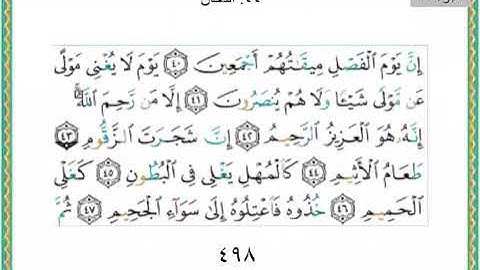 ٤٤. الدخان
إِنَّ يَوْمَ ٱلْفَصْلِ مِيقَـٰتُهُمْ أَجْمَعِينَ ﴿٤٠﴾ يَوْمَ لَا يُغْنِى مَوْلًى
عَن مَّوْلًى شَيْـًٔا وَلَا هُمْ يُنصَرُونَ ﴿٤١﴾ إِلَّا مَن رَّحِمَ ٱللَّهُ ۚ
إِنَّهُۥ هُوَ ٱلْعَزِيزُ ٱلرَّحِيمُ ﴿٤٢﴾ إِنَّ شَجَرَتَ ٱلزَّقُّومِ ﴿٤٣﴾
طَعَامُ ٱلْأَثِيمِ ﴿٤٤﴾ كَٱلْمُهْلِ يَغْلِى فِى ٱلْبُطُونِ ﴿٤٥﴾ كَغَلْىِ
ٱلْحَمِيمِ ﴿٤٦﴾ خُذُوهُ فَٱعْتِلُوهُ إِلَىٰ سَوَآءِ ٱلْجَحِيمِ ﴿٤٧﴾ ثُمَّ
٤٩٨